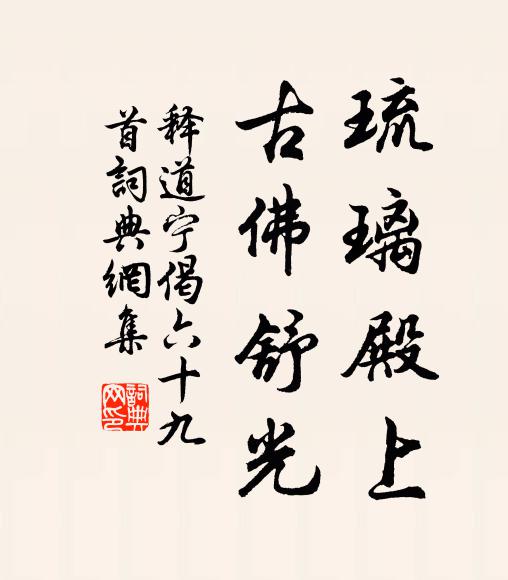 琉璃殿上
古佛舒光
释道宁偈六十九
首詞典網集
詞典网印